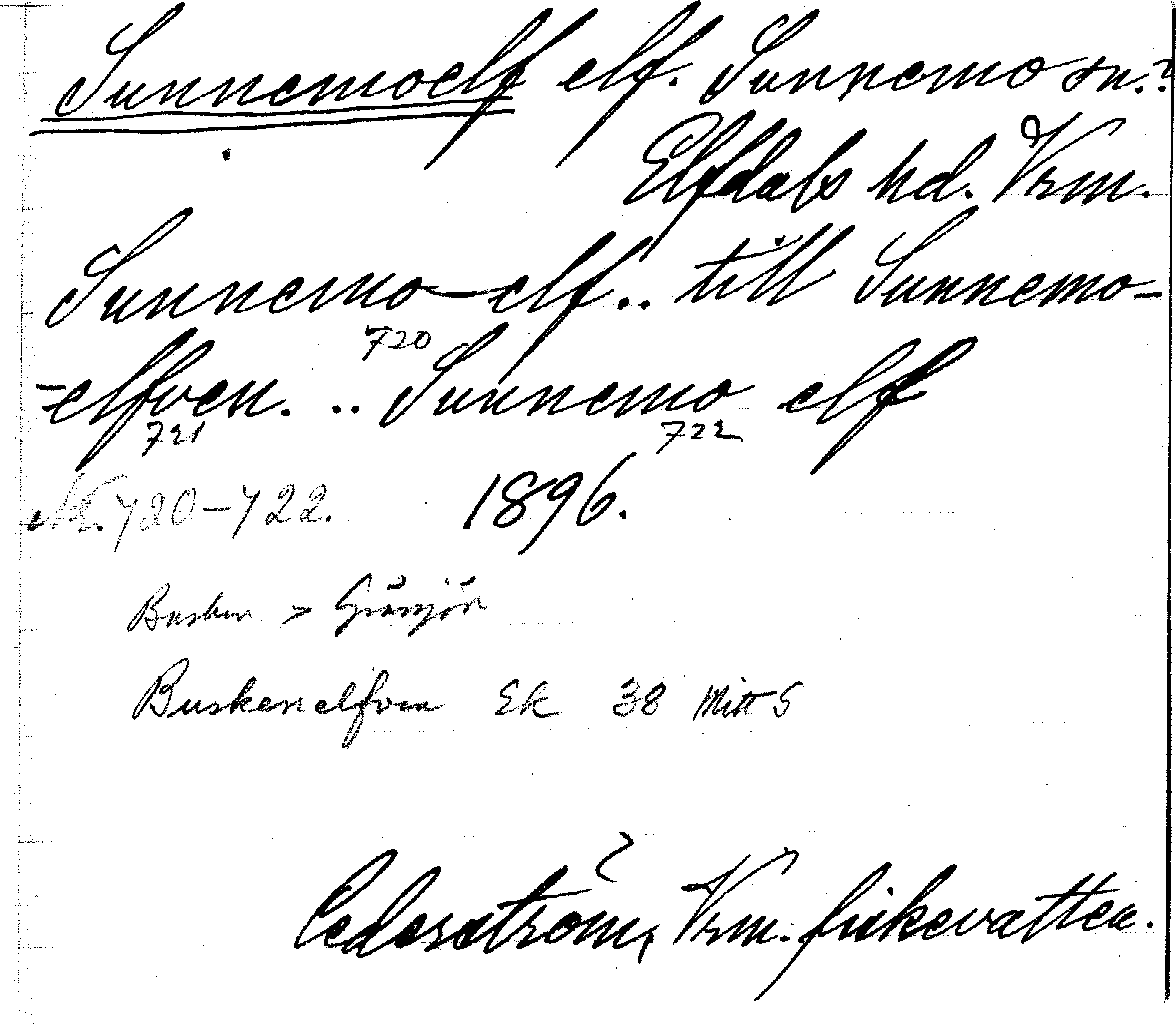 Sunnemoelf elf. Sunnemo sn.?
Elfdals hd. Vrm.
Sunnemo-elf.. till Sunnemo-
720
-elfven. .. Sunnemo elf
721 722
Nr. 720-722. 1896.
Busken >
Buskenelfven Ek 38 Mitt S
Cederström, Vrm. fiskevatten.